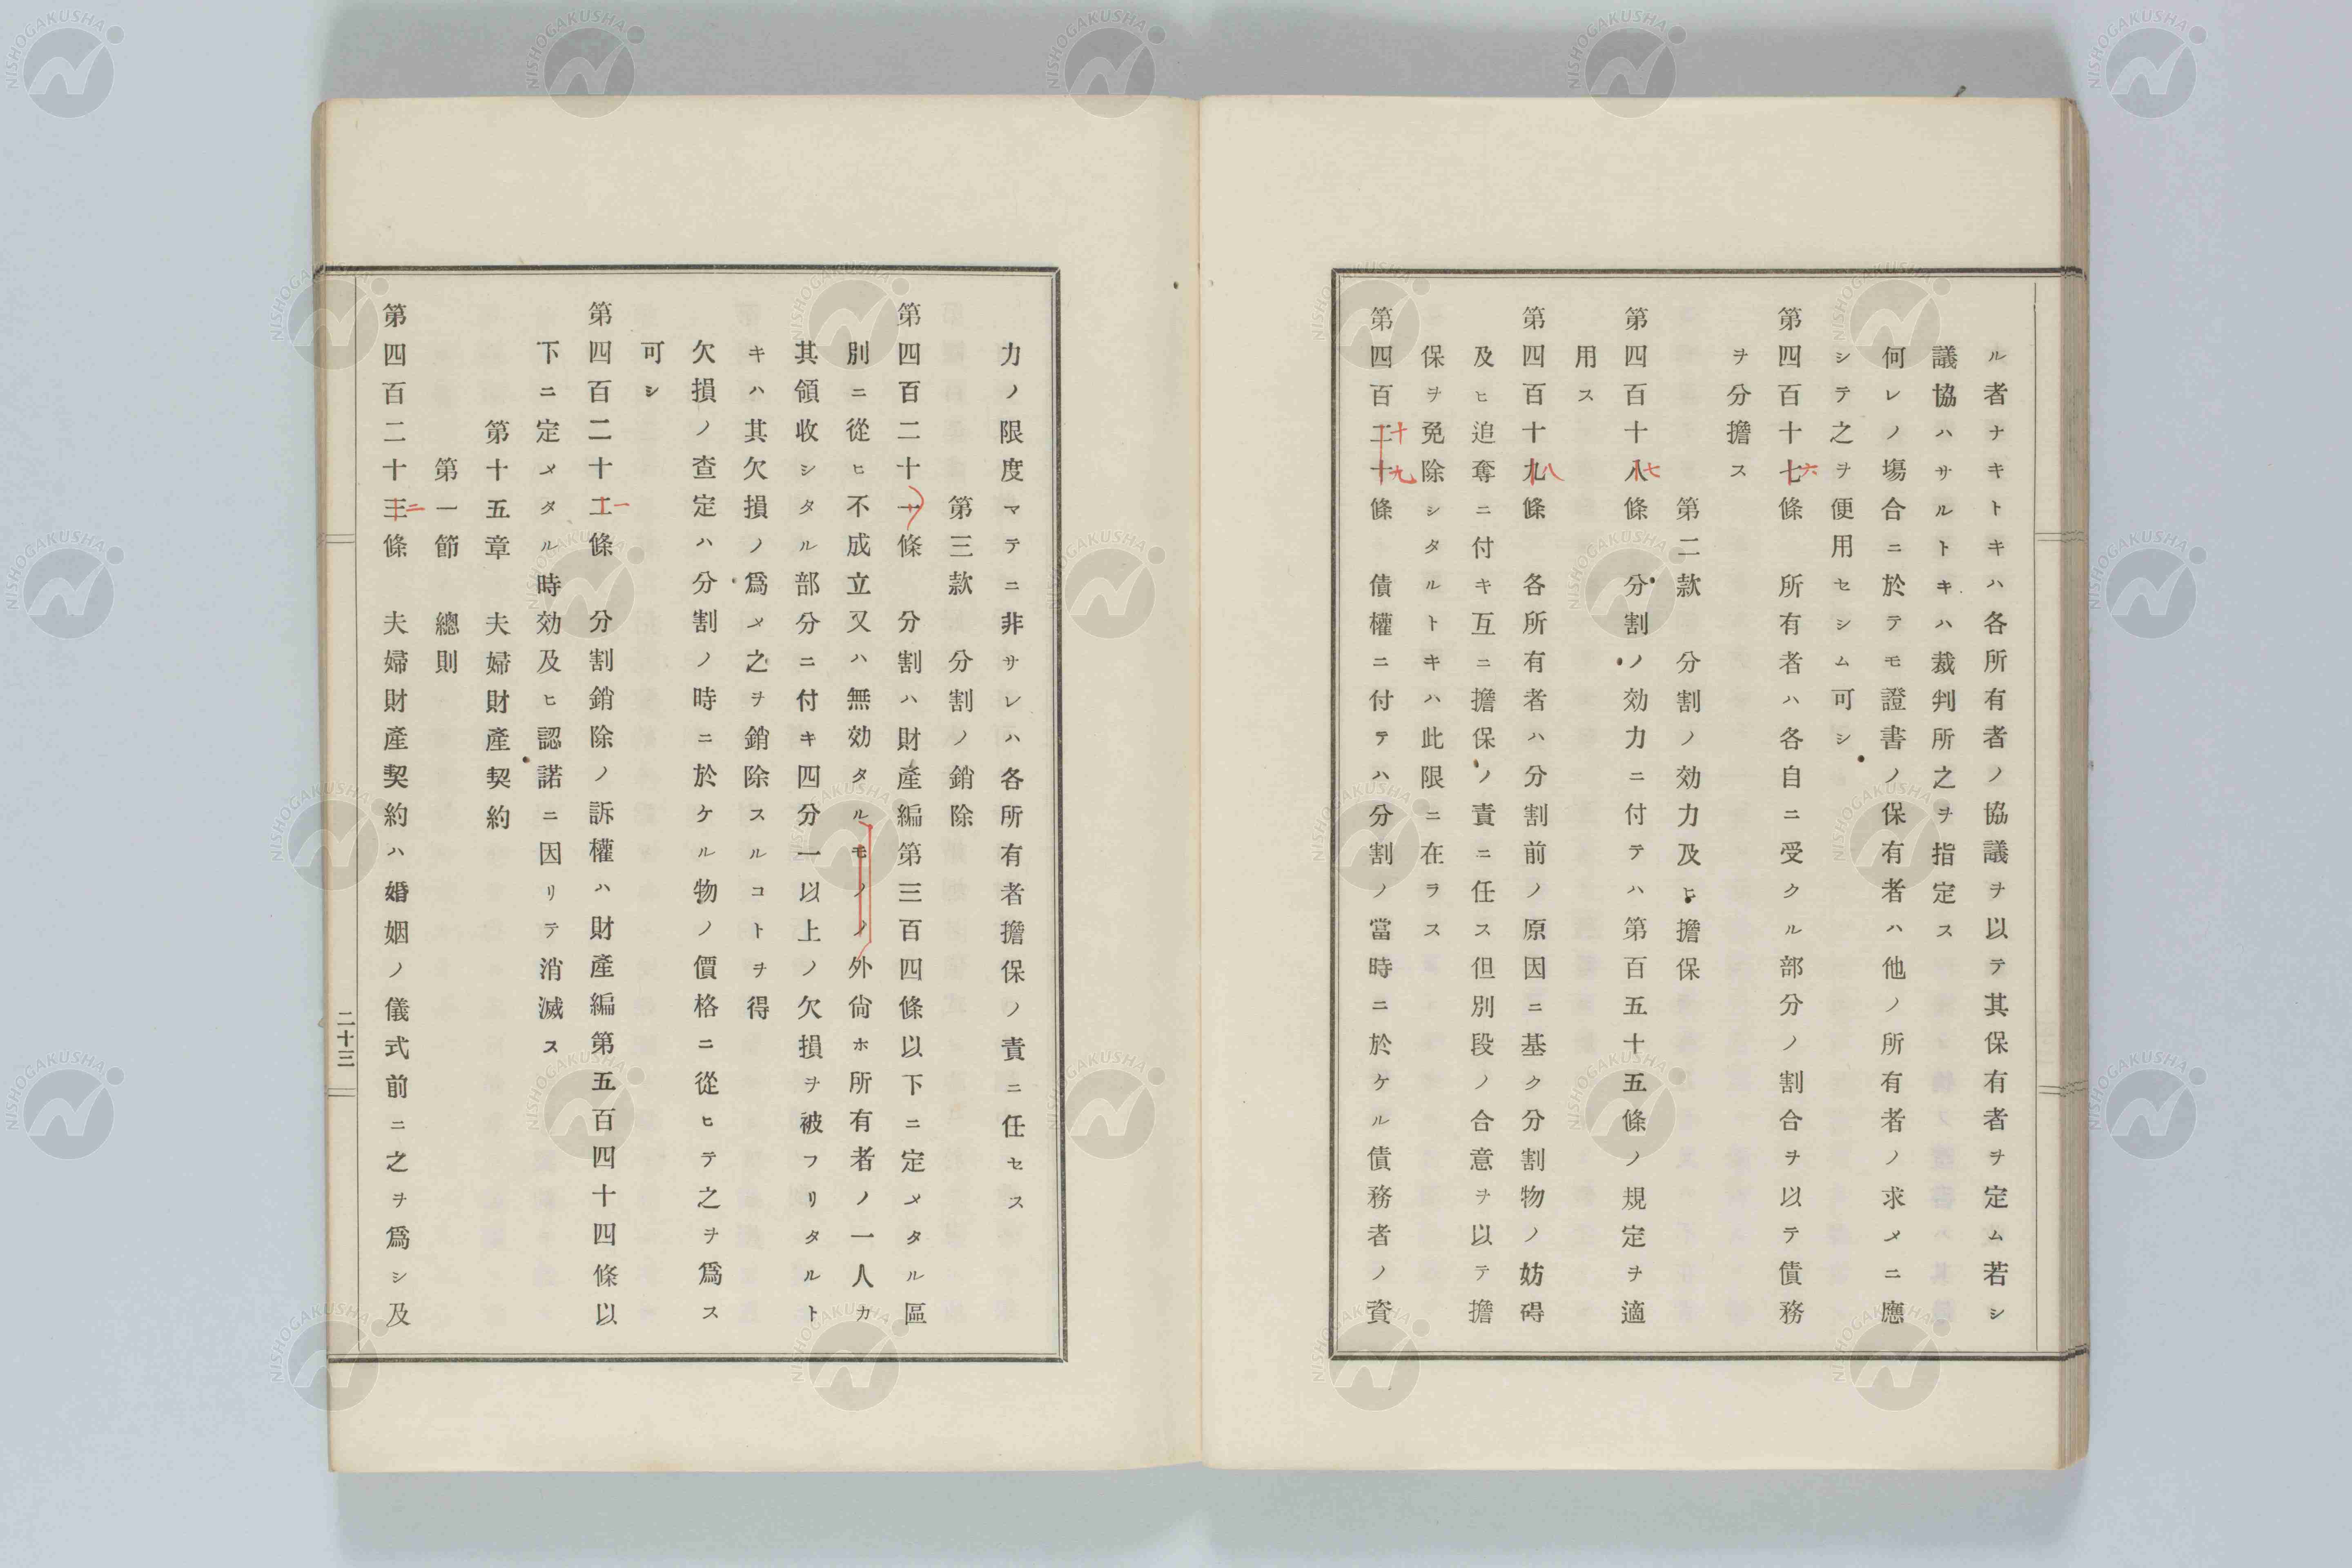 ル者ナキトキハ各所有者ノ協議ヲ以テ其保有者ヲ定ム若シ
議協ハサルトキハ裁判所之ヲ指定ス
何レノ場合ニ於テモ證書ノ保有者ハ他ノ所有者ノ求メニ應
シテ之ヲ便用セシム可シ
第四百十七條　所有者ハ各自ニ受クル部分ノ割合ヲ以テ債務
六
ヲ分擔ス
第二款　分割ノ効力及ヒ擔保
第四百十八條　分割ノ効力ニ付テハ第百五十五條ノ規定ヲ適
七
用ス
第四百十九條　各所有者ハ分割前ノ原因ニ基ク分割物ノ妨碍
八
及ヒ追奪ニ付キ互ニ擔保ノ責ニ任ス但別段ノ合意ヲ以テ擔
保ヲ免除シタルトキハ此限ニ在ラス
第四百二十條　債權ニ付テハ分割ノ當時ニ於ケル債務者ノ資
十九
力ノ限度マテニ非サレハ各所有者擔保ノ責ニ任セス
第三款　分割ノ銷除
第四百二十一條　分割ハ財產編第三百四條以下ニ定メタル區
別ニ從ヒ不成立又ハ無効タルモノノ外尙ホ所有者ノ一人カ
其領收シタル部分ニ付キ四分一以上ノ欠損ヲ被フリタルト
キハ其欠損ノ爲メ之ヲ銷除スルコトヲ得
欠損ノ查定ハ分割ノ時ニ於ケル物ノ價格ニ從ヒテ之ヲ爲ス
可シ
第四百二十二條　分割銷除ノ訴權ハ財產編第五百四十四條以
一
下ニ定メタル時効及ヒ認諾ニ因リテ消滅ス
第十五章　夫婦財產契約
第一節　總則
第四百二十三條　夫婦財產契約ハ婚姻ノ儀式前ニ之ヲ爲シ及
二
二十三
NISHOGAKUSHA